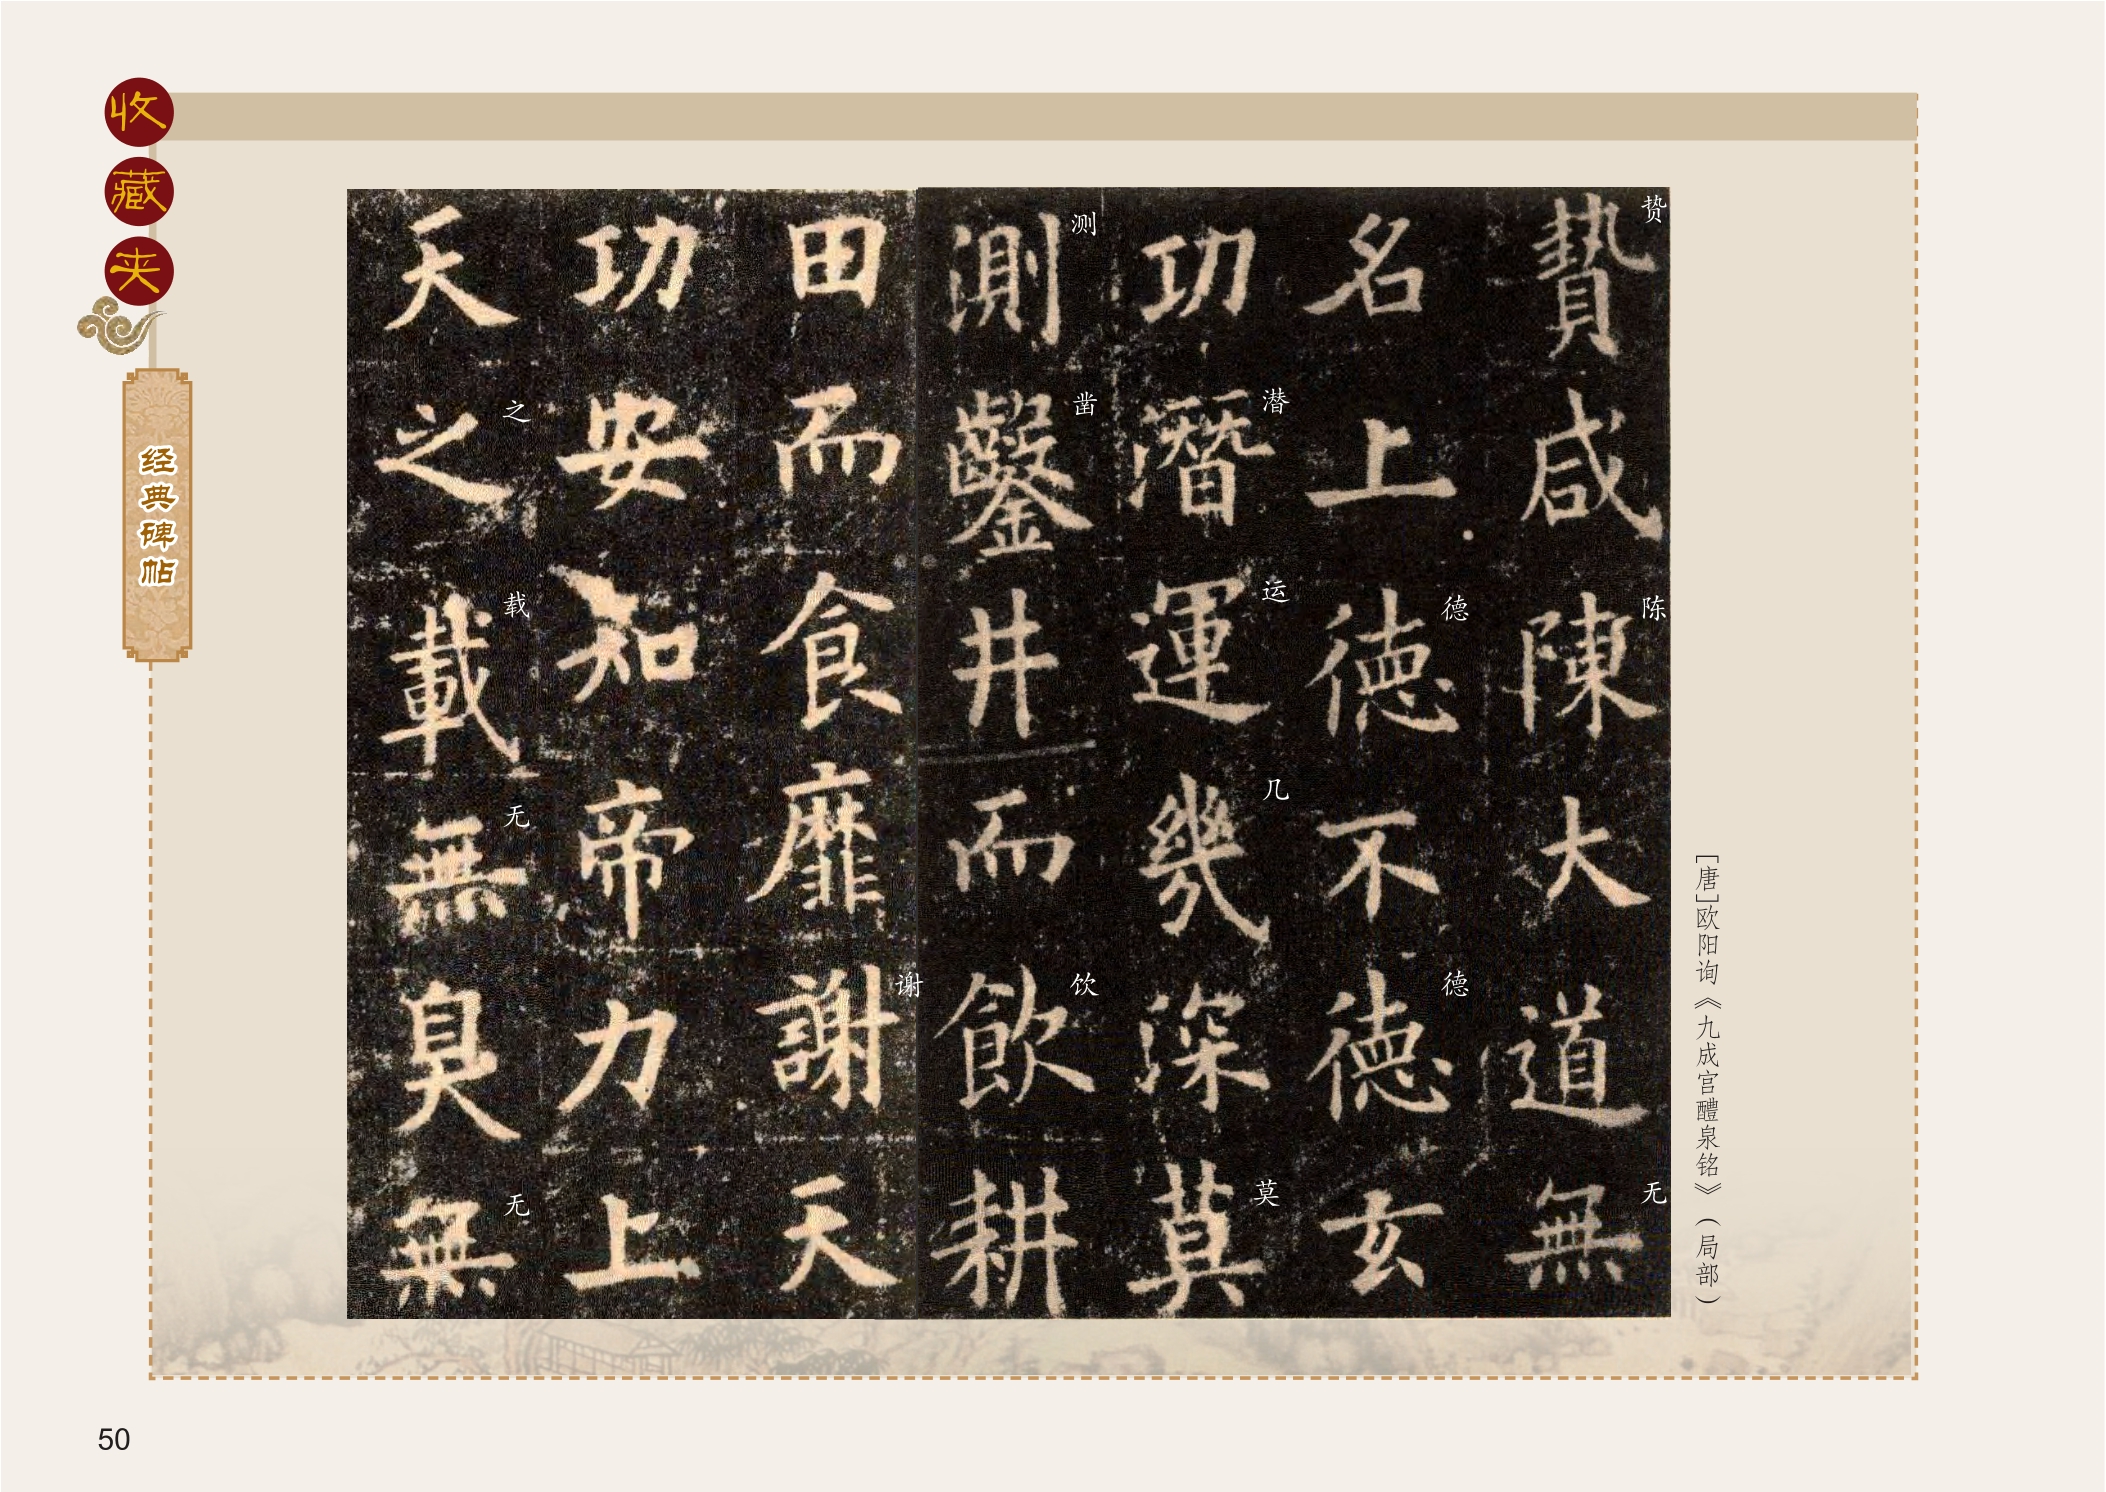 收藏夹
经典碑帖
贽
贄咸陳大道無
陈
无
名上德不德玄
德
德
功潛運幾深莫
潜
运
几
莫
測鑿井而飲耕
测
凿
饮
田而食靡謝天
谢
功安知帝力上
天之載無臭無
之
载
无
无
[唐]欧阳询《九成宫醴泉铭》(局部)
50